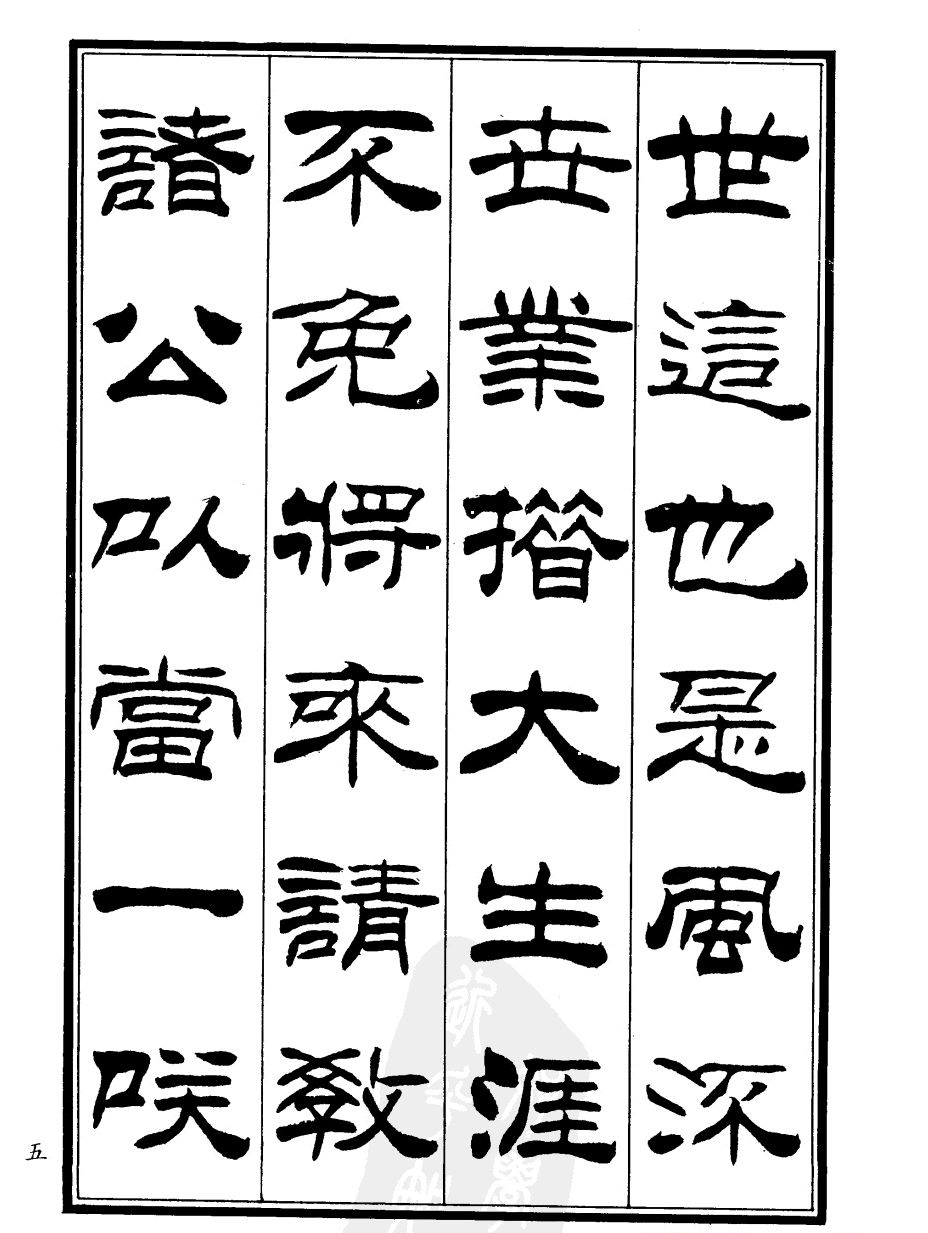 世這也是風流
世業措大生涯
不免將來請教
諸公以當一咲
五